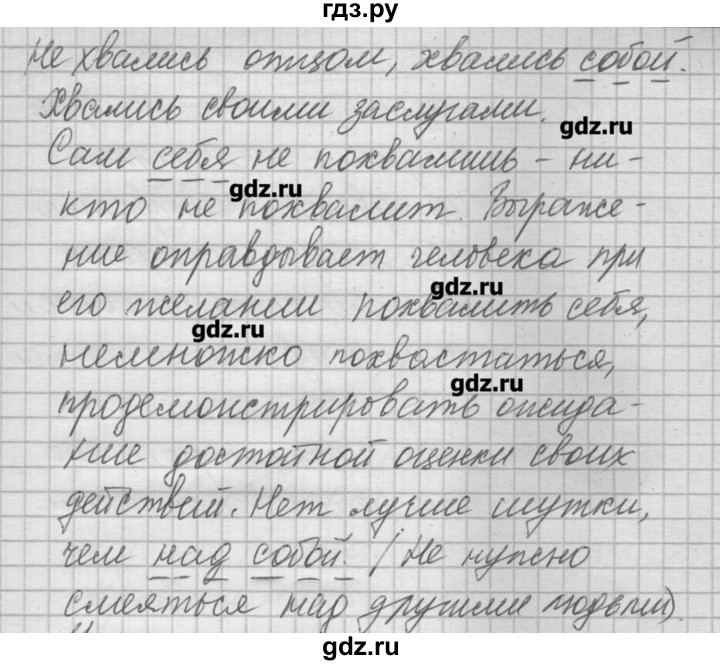 гдз.ру
Не хвались отцом, хвались собой.
Хвались своими заслугами.
gdz.ru
Сам себя не похвалишь - ни-
gdz.ru
кто не похвалит. Выраже-
ние оправдывает человека при
gdz.ru
его желании похвалить себя,
gdz.ru
немножко похвастаться,
gdz.ru
продемонстрировать ожида-
ние достойной оценки своих
действий. Нет лучше шутки,
чем над собой. (Не нужно
смеяться над другими людьми).
gdz.ru